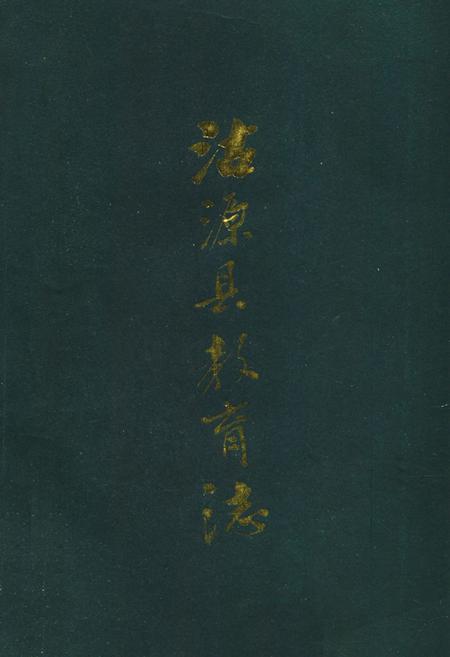 沽源县教育志